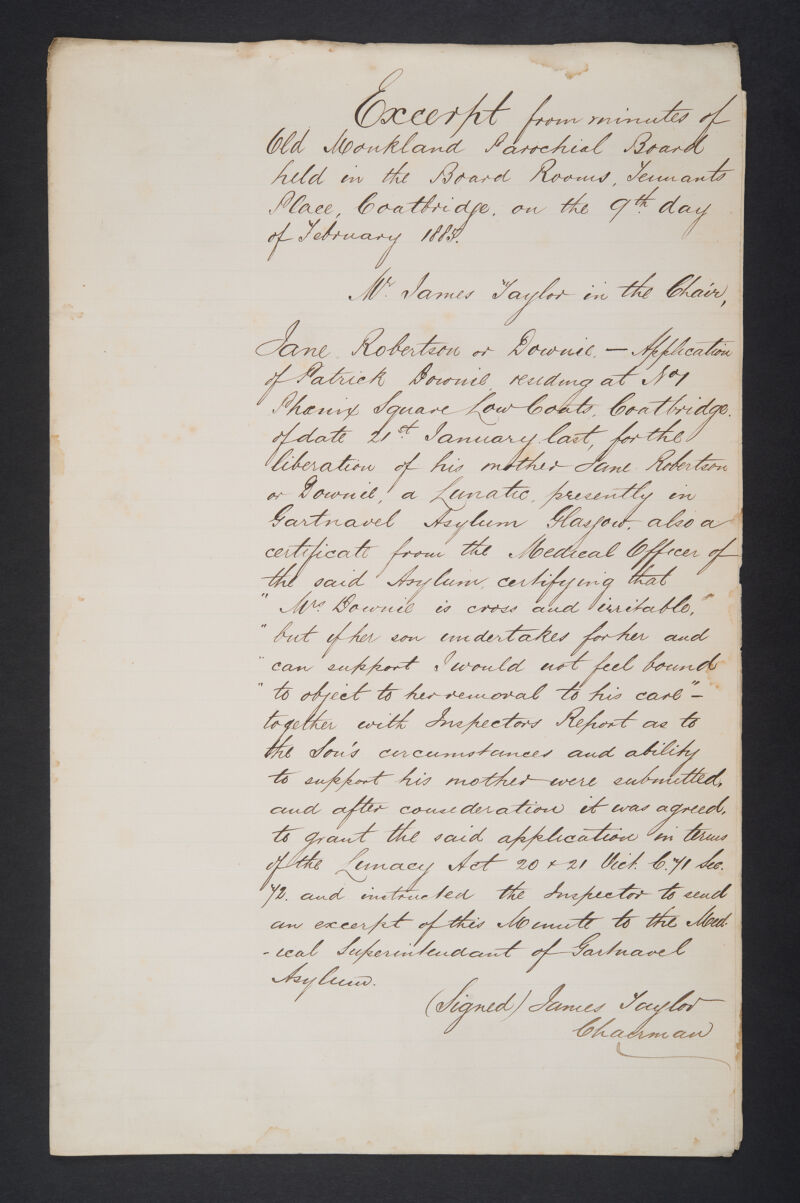 Excerpt from minutes of
Old Monkland Parochial Board
held in the Board Rooms, Tennants
Place, Coatbridge, on the 9th day
of February 1885.
Mr. James Taylor in the Chair,
Jane Robertson or Downie. — Application
of Patrick Downie residing at No 1
Phœnix Square Low Coats, Coatbridge.
of date 21st January last, for the
liberation of his mother Jane Robertson
or Downie, a Lunatic, presently in
Gartnavel Asylum Glasgow, also a
certificate from the Medical Officer of
the said Asylum, certifying that
" Mrs. Downie is cross and irritable,
" but if her son undertakes for her and
" can support I would not feel bound
" to object to her removal to his care" —
together with Inspectors Report as to
the Son's circumstances and ability
to support his mother were submitted,
and after consideration it was agreed,
to grant the said application in terms
of the Lunacy Act 20 + 21 Vict. C. 71 Sec.
72. and instructed the Inspector to send
an excerpt of this Minute to the Med-
-ical Superintendant of Gartnavel
Asylum.
(Signed) James Taylor
Chairman